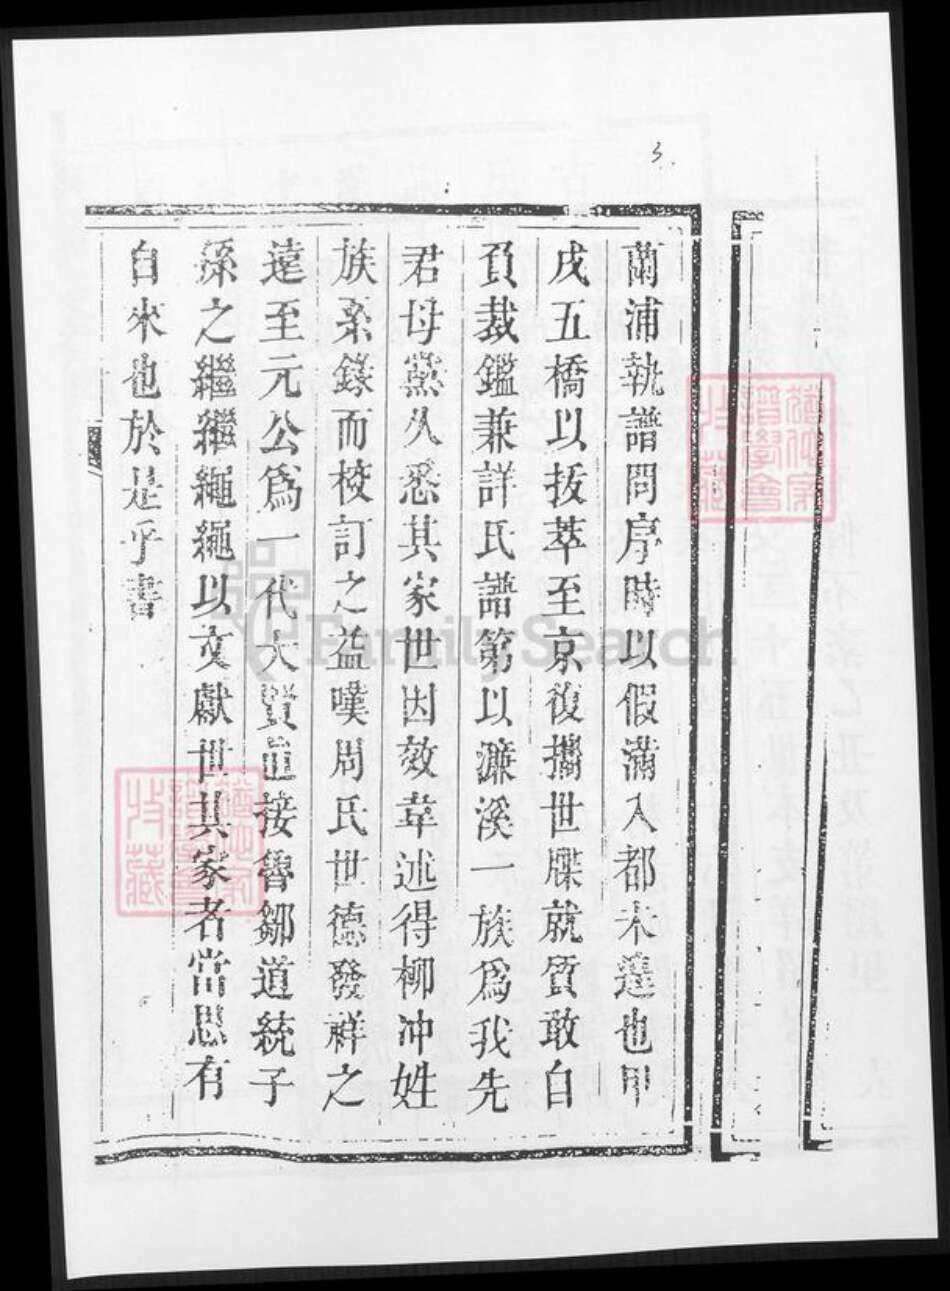 3.
蘭浦執譜問序時以假滿入都未遑也甲
戌五橋以拔萃至京復攜世牒就質敢自
負裁鑑兼詳氏譜第以濂溪一族爲我先
君母黨久悉其家世因效韋述得柳沖姓
族系錄而校訂之益嘆周氏世德發祥之
遠至元公爲一代大賢道接魯鄒道統子
孫之繼繼繩繩以文獻世其家者當思有
自來也於是乎書
FamilySearch